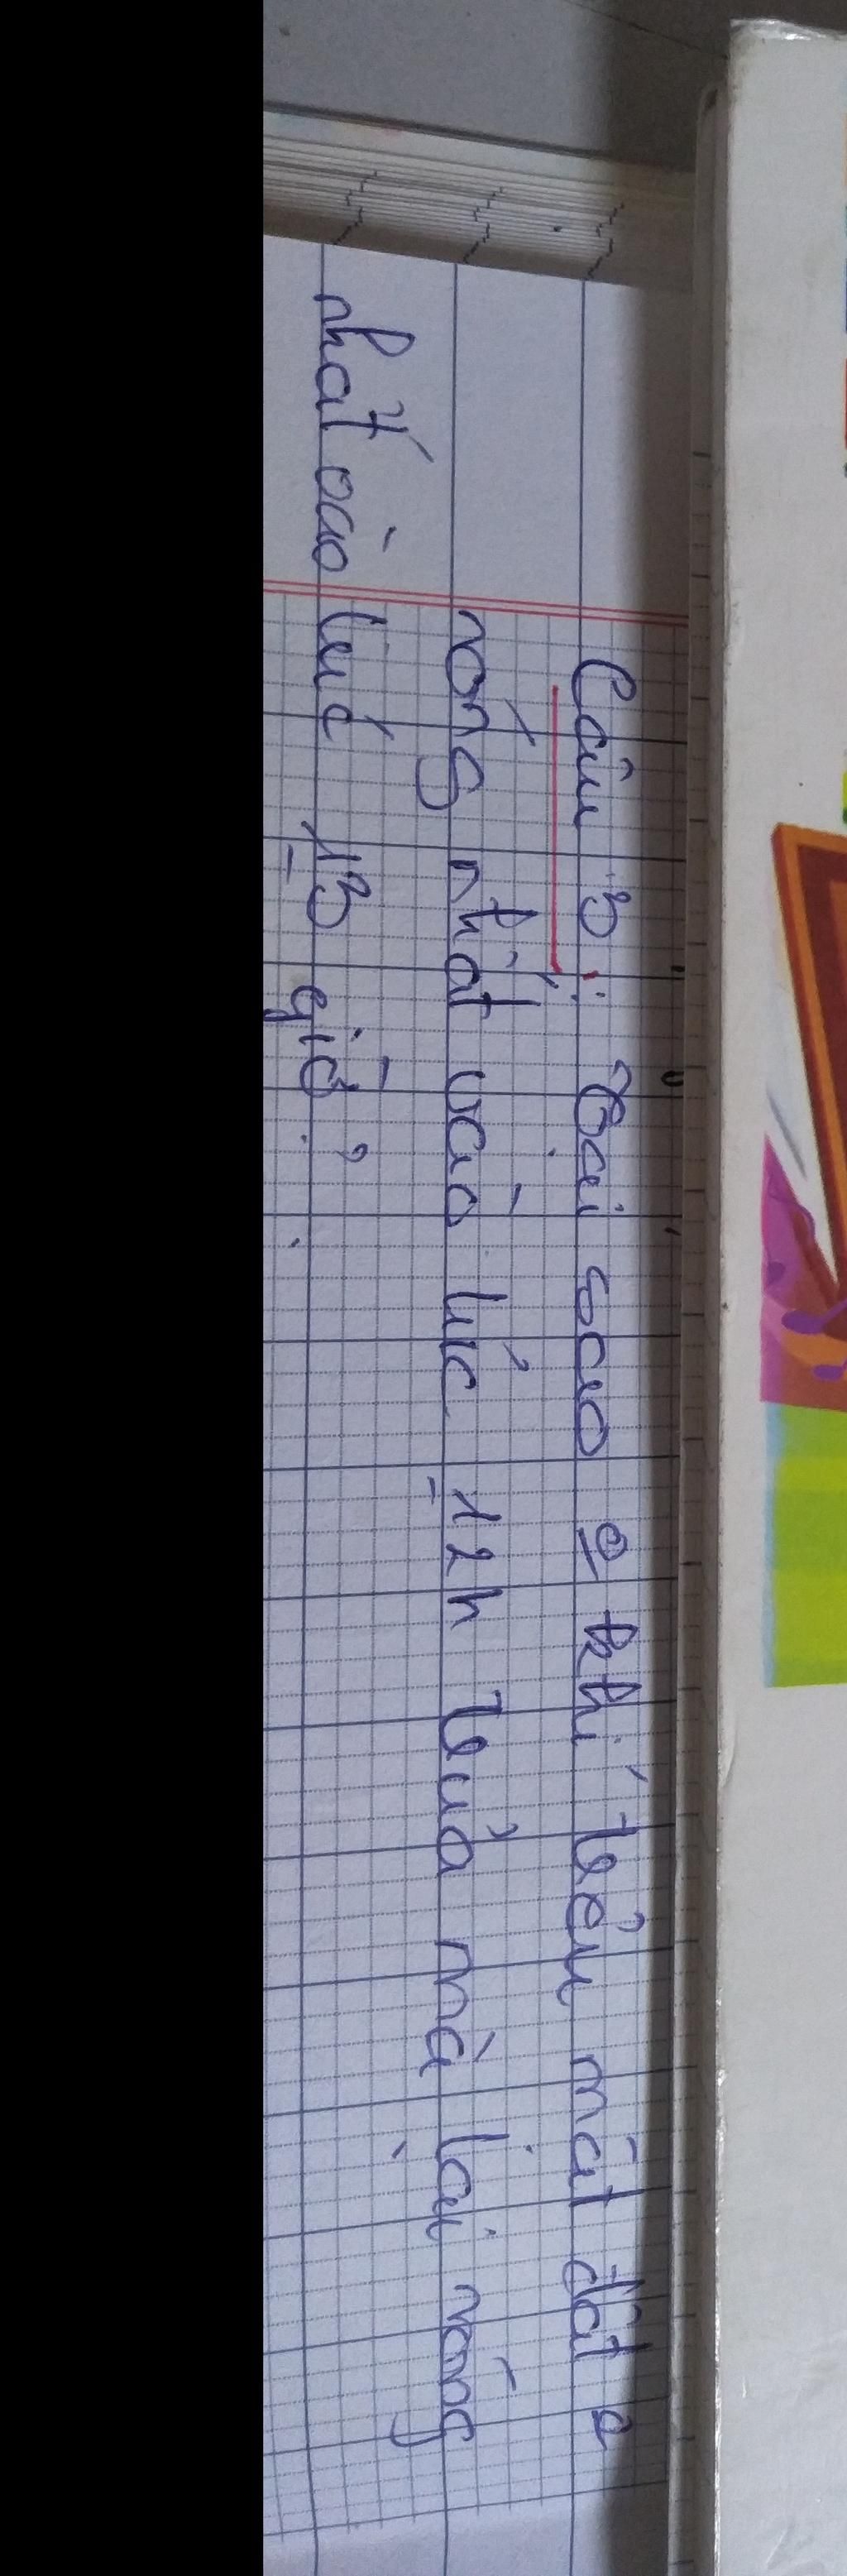 Câu 3 : Tại sao khí trên mặt đất
nóng nhất vào lúc 12h trưa mà lại nóng
nhất vào lúc 13 giờ ?